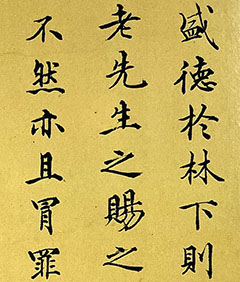 盛德於林下則
老先生之賜之
不然亦且冐罪